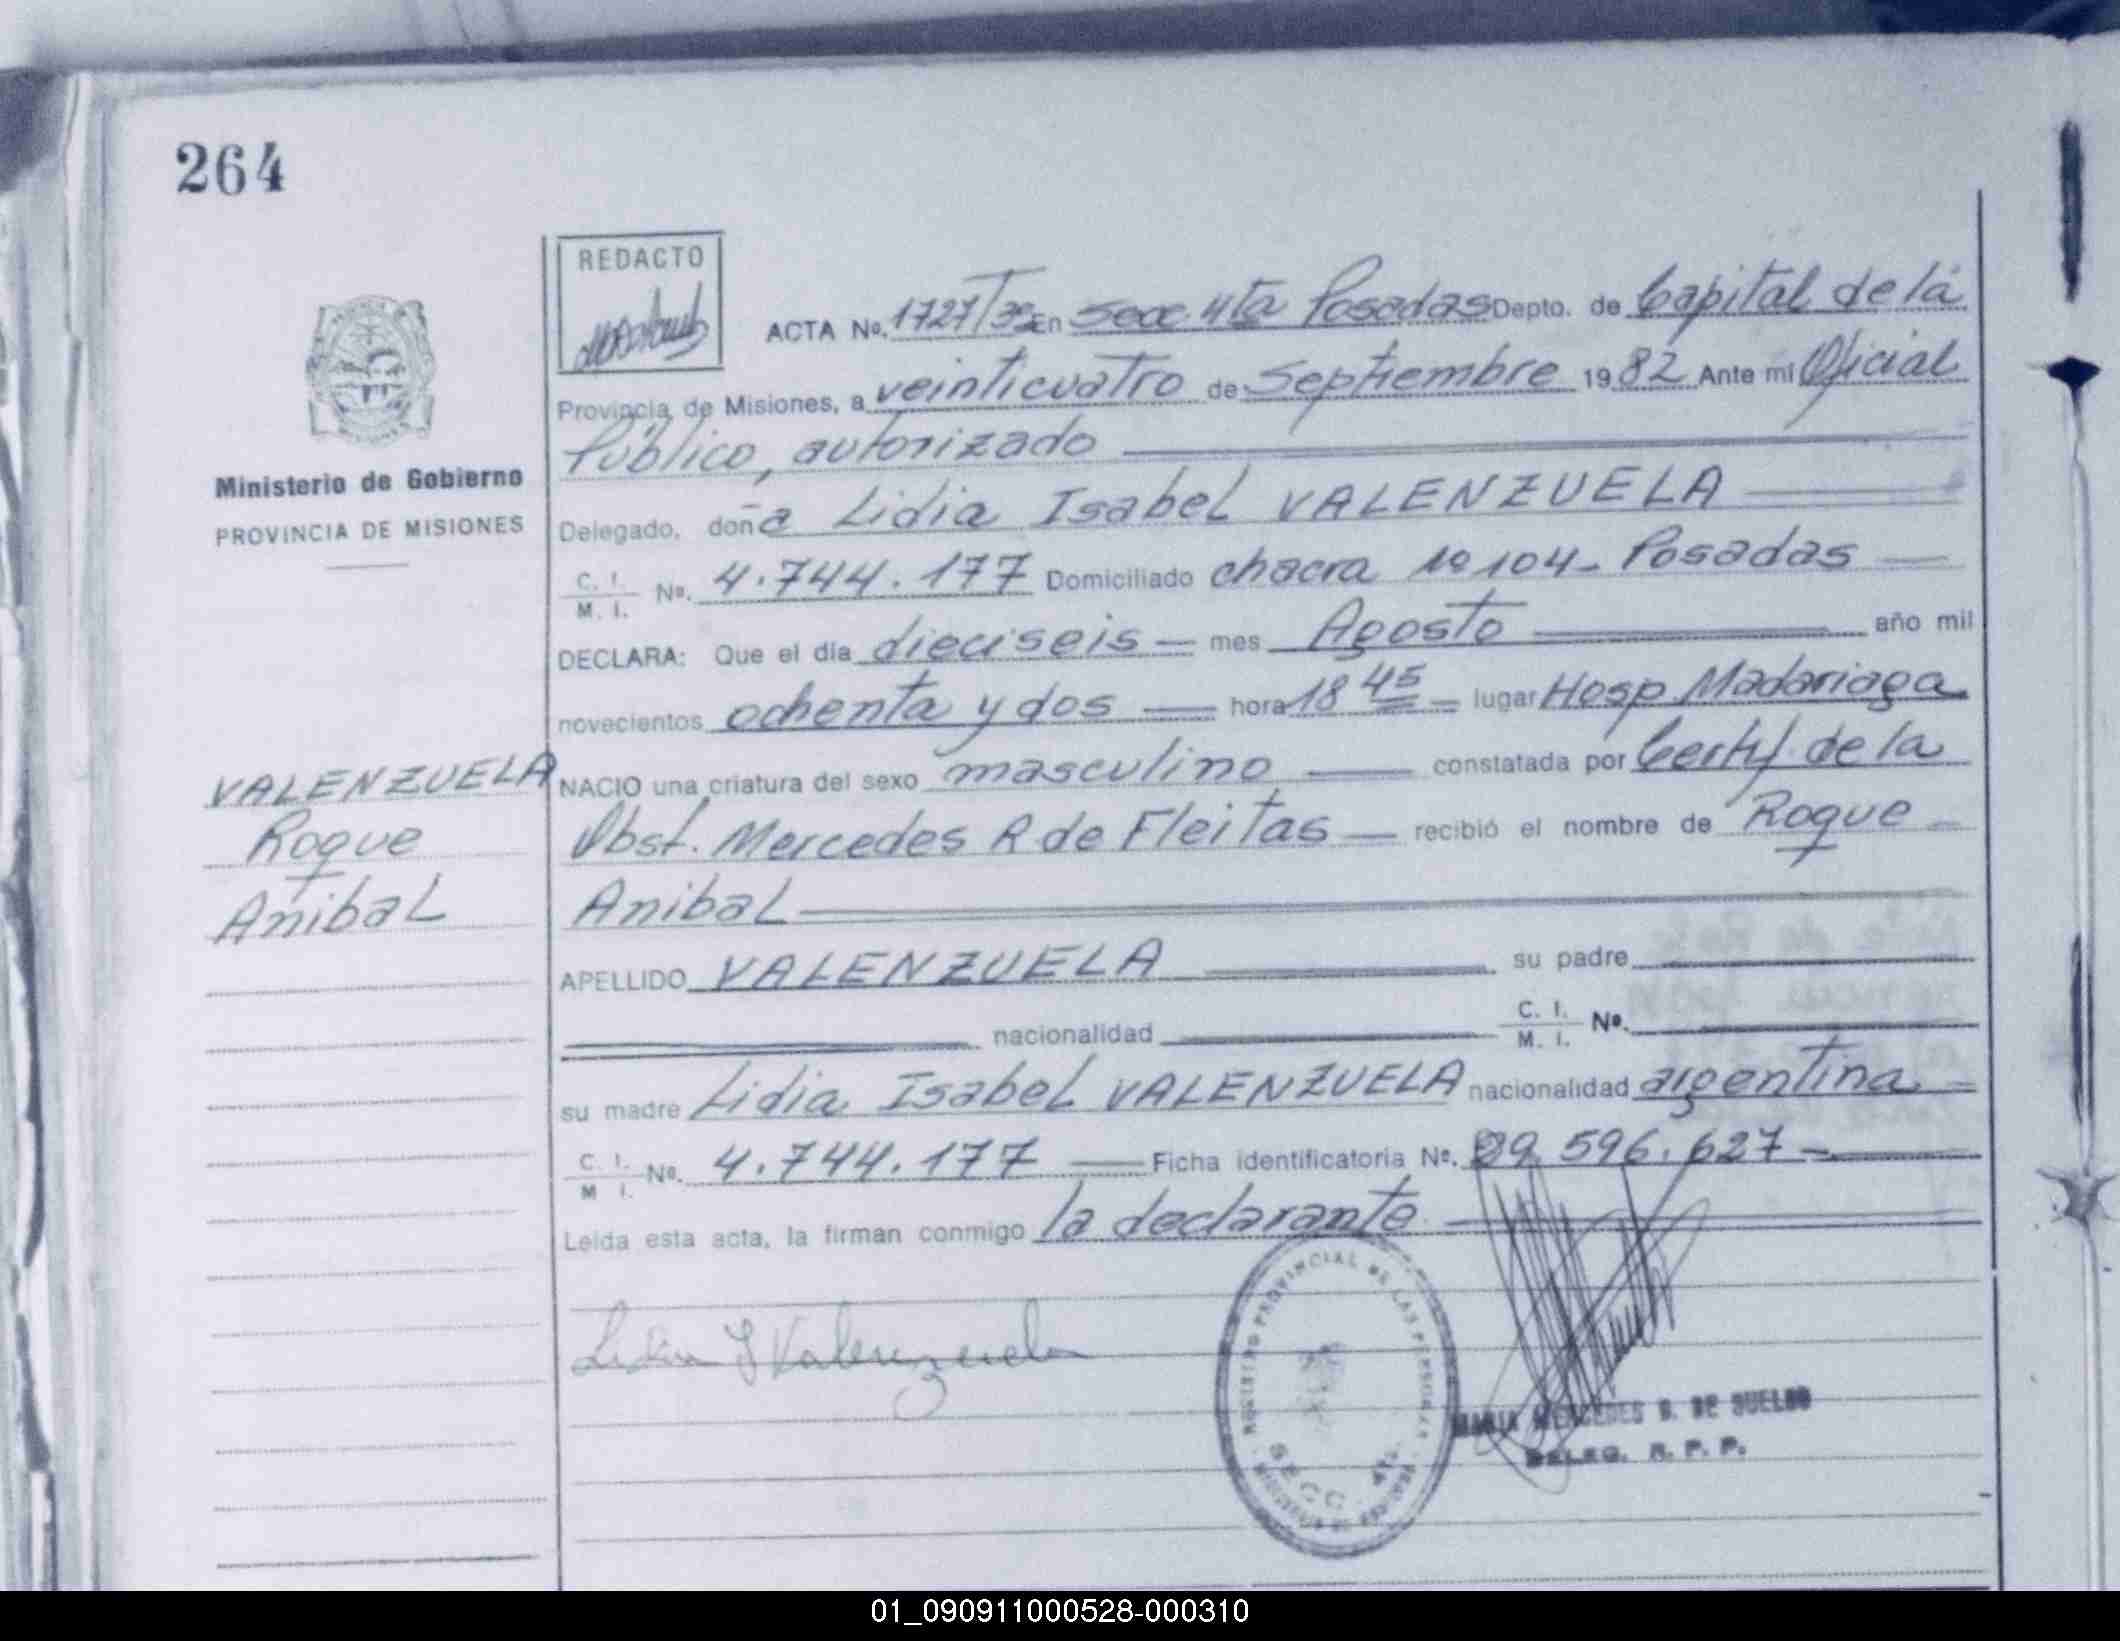 264
REDACTO
ACTA Nº. 1727/ En Secc 4ta Posadas Depto. de Capital de la
Provincia de Misiones, a veinticuatro de Septiembre 1982 Ante mi Oficial
Público, autorizado
Ministerio de Gobierno
PROVINCIA DE MISIONES
Delegado, doña Lidia Isabel VALENZUELA
C. I.
M. I. Nº. 4.744.177 Domiciliado chacra nº 104 - Posadas
DECLARA: Que el día dieciseis mes Agosto año mil
novecientos ochenta y dos hora 18 45 lugar Hosp Madariaga
VALENZUELA
Roque
Anibal
NACIO una criatura del sexo masculino constatada por Certif. de la
Obst. Mercedes R de Fleitas recibió el nombre de Roque
Anibal
APELLIDO VALENZUELA su padre
nacionalidad C. I.
M. I. Nº.
su madre Lidia Isabel VALENZUELA nacionalidad argentina
C. I.
M I. Nº. 4.744.177 Ficha identificatoria Nº. 29.596.627
Leída esta acta, la firman conmigo la declarante
Lidia I Valenzuela
REGISTRO PROVINCIAL DE LAS PERSONAS
SECC. 4ta.
MARIA MERCEDES B. DE SUELDO
DELEG. R. P. P.
01_090911000528-000310